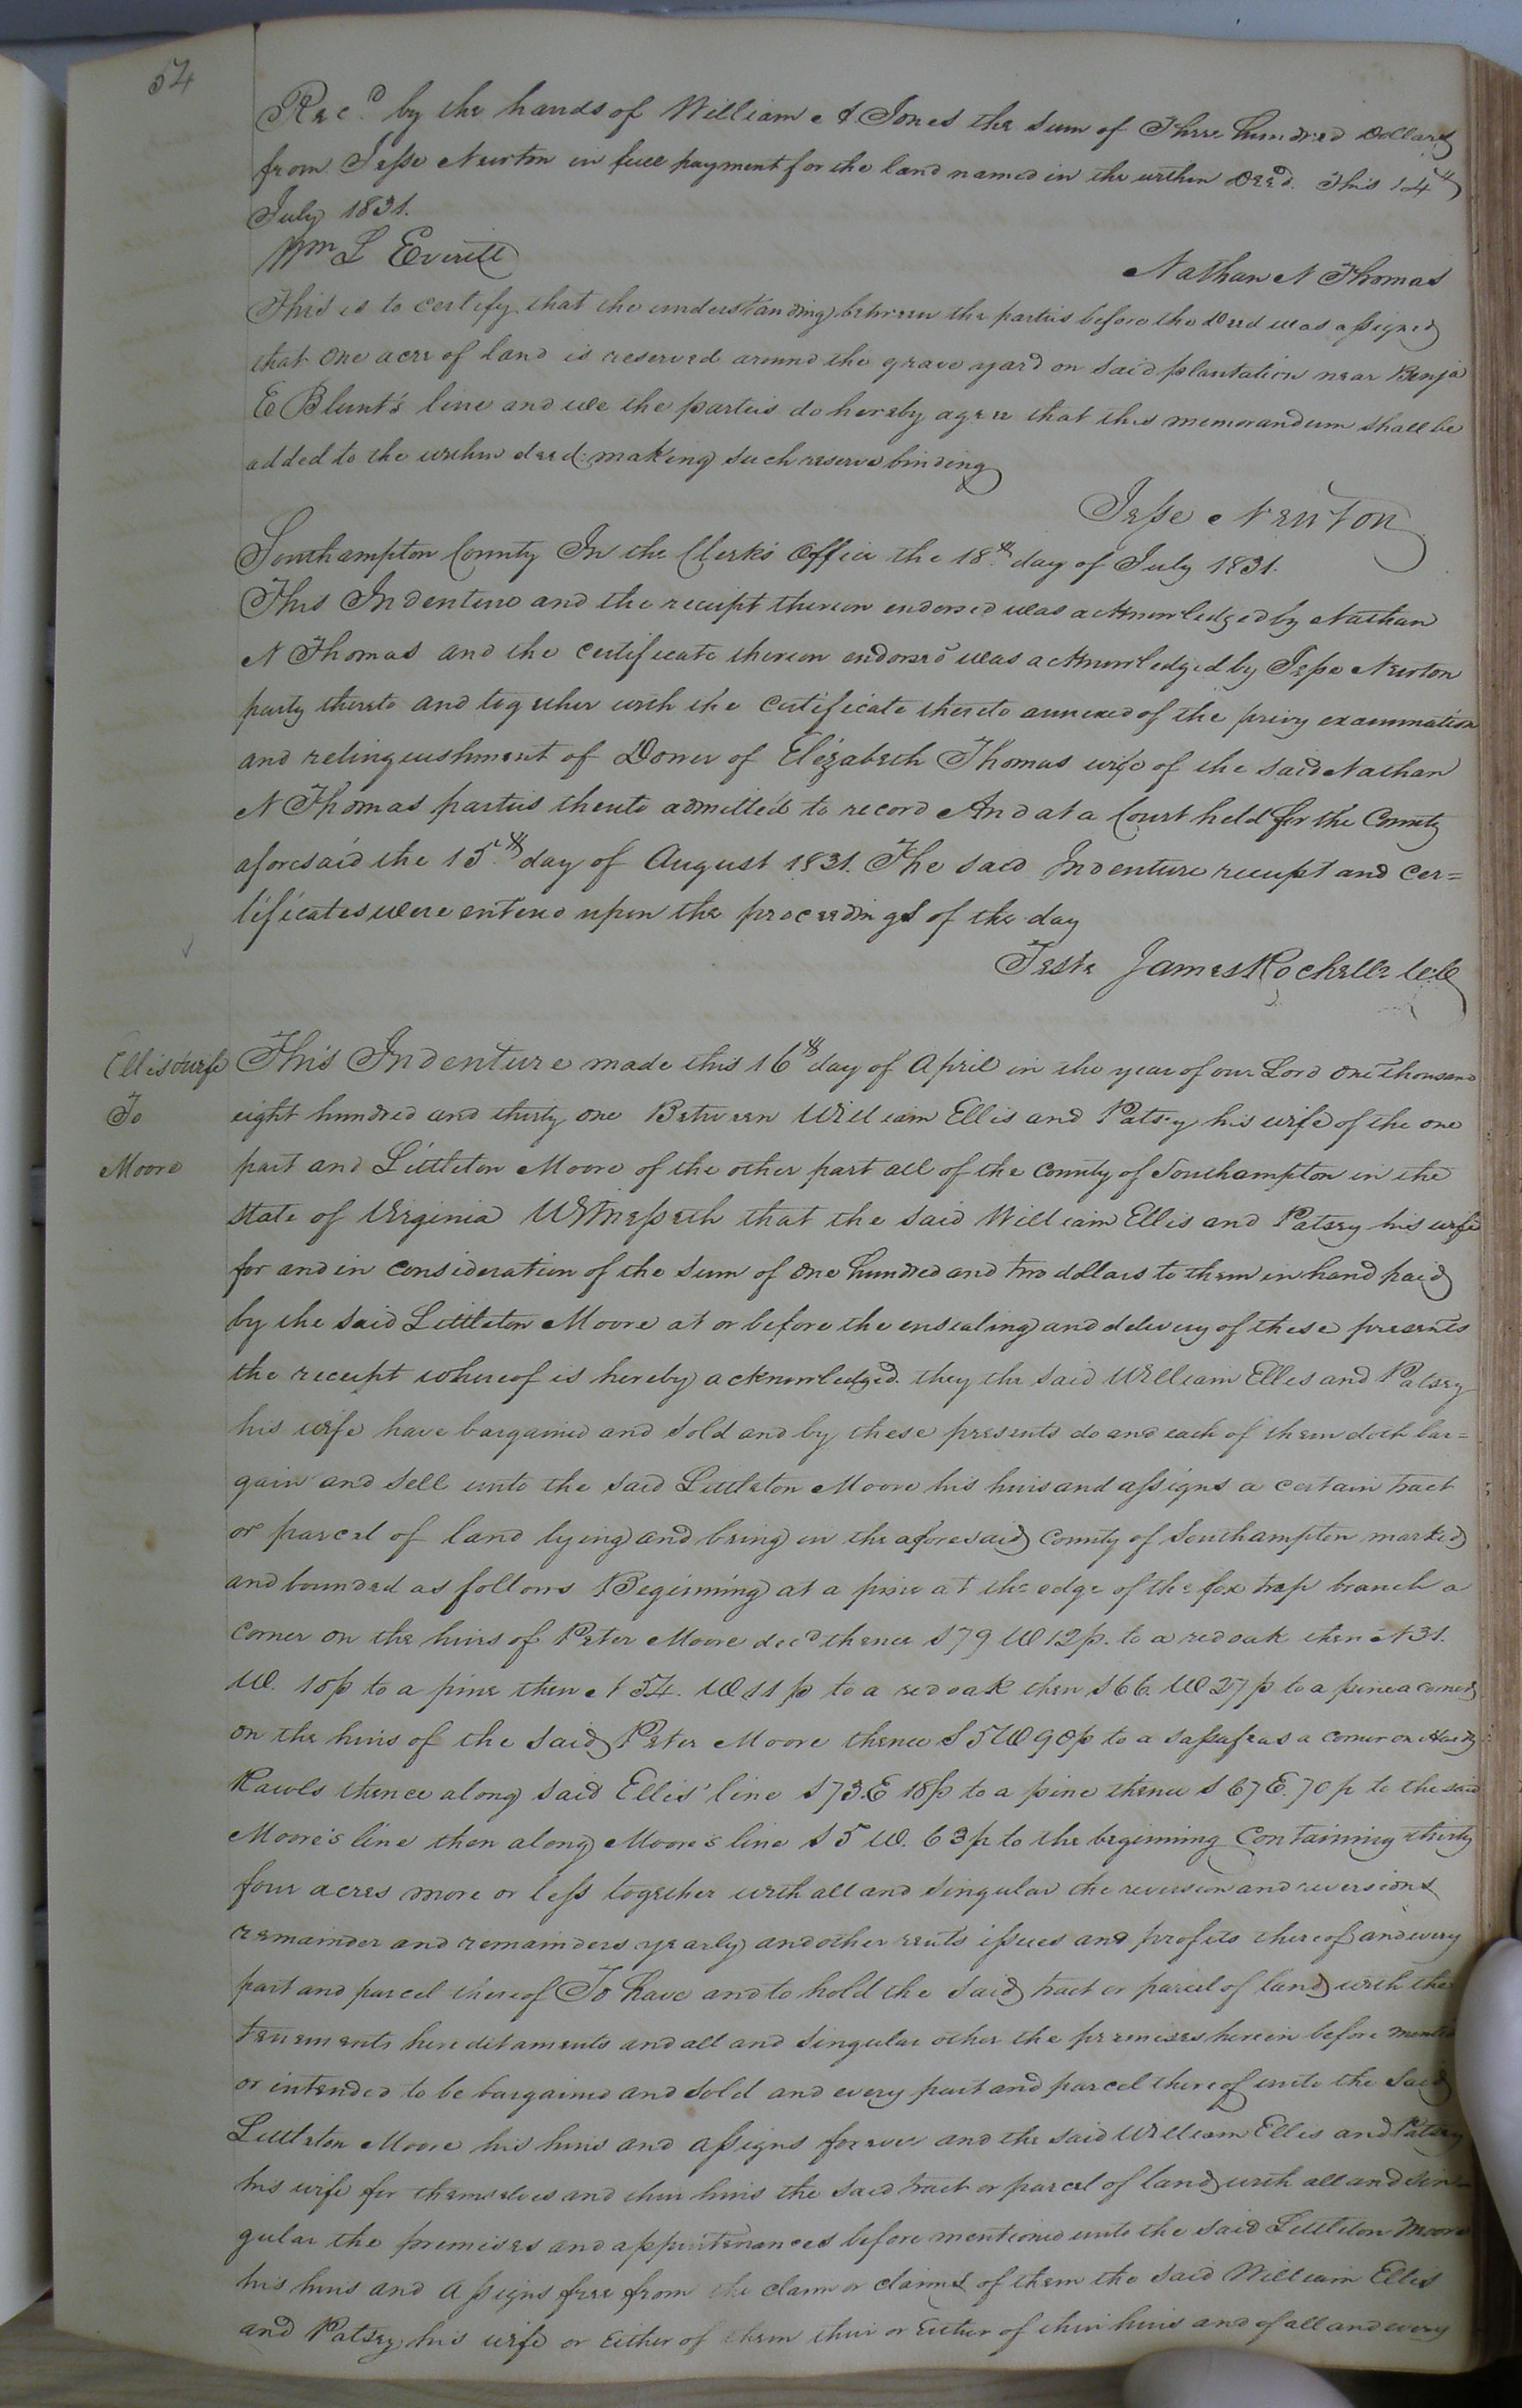 54
Recd. by the hands of William A Jones the sum of Three hundred Dollars
from Jesse Newton in full payment for the land named in the within Deed. This 14th
July 1831.
Wm L Everitt
Nathan N Thomas
This is to certify that the understanding between the parties before the Deed was assigned
that one acre of land is reserved around the grave yard on said plantation near Benja
E Blunt's line and we the parties do hereby agree that this memorandum shall be
added to the within deed making such reserve binding
Jesse Newton
Southampton County In the Clerk's Office the 18th. day of July 1831.
This Indenture and the receipt thereon endorsed was acknowledged by Nathan
N Thomas and the certificate thereon endorsed was acknowledged by Jesse Newton
party thereto and together with the certificate thereto annexed of the privy examination
and relinquishment of Dower of Elizabeth Thomas wife of the said Nathan
N Thomas parties thereto admitted to record And at a Court held for the County
aforesaid the 15th. day of August 1831. The said Indenture receipt and cer=
tificates were entered upon the proceedings of the day
Teste James Rochelle
Ellis & wife
To
Moore
This Indenture made this 16th day of April in the year of our Lord one thousand
eight hundred and thirty one Between William Ellis and Patsey his wife of the one
part and Littleton Moore of the other part all of the county of Southampton in the
State of Virginia Witnesseth that the said William Ellis and Patsey his wife
for and in consideration of the sum of one hundred and two dollars to them in hand paid
by the said Littleton Moore at or before the ensealing and delivery of these presents
the receipt whereof is hereby acknowledged. they the said William Ellis and Patsey
his wife have bargained and sold and by these presents do and each of them doth bar=
gain and sell unto the said Littleton Moore his heirs and assigns a certain tract
or parcel of land lying and being in the aforesaid County of Southampton marked
and bounded as follows Beginning at a pine at the edge of the fox trap branch a
corner on the heirs of Peter Moore decd thence S 79 W 12p. to a red oak then N 31.
W. 10p to a pine then N 54. W 11 p to a red oak then S 66. W 27 p to a pine a corner
on the heirs of the said Peter Moore thence S 5 W 90p to a sassafras a corner on Hardy
Rawls thence along said Ellis' line S 73.E 18p to a pine thence S 67 E. 70 p to the said
Moore's line then along Moore's line S 5 W. 63p to the beginning Containing thirty
four acres more or less together with all and singular the reversion and reversions
remainder and remainders yearly and other rents issues and profits thereof and every
part and parcel thereof To have and to hold the said tract or parcel of land with the
tenements hereditaments and all and singular other the premises herein before
or intended to be bargained and sold and every part and parcel thereof unto the said
Littleton Moore his heirs and assigns forever and the said William Ellis and Patsey
his wife for themselves and their heirs the said tract or parcel of land with all and sin=
gular the premises and appurtenances before mentioned unto the said Littleton Moore
his heirs and assigns free from the claim or claims of them the said William Ellis
and Patsey his wife or either of them their or either of their heirs and of all and every